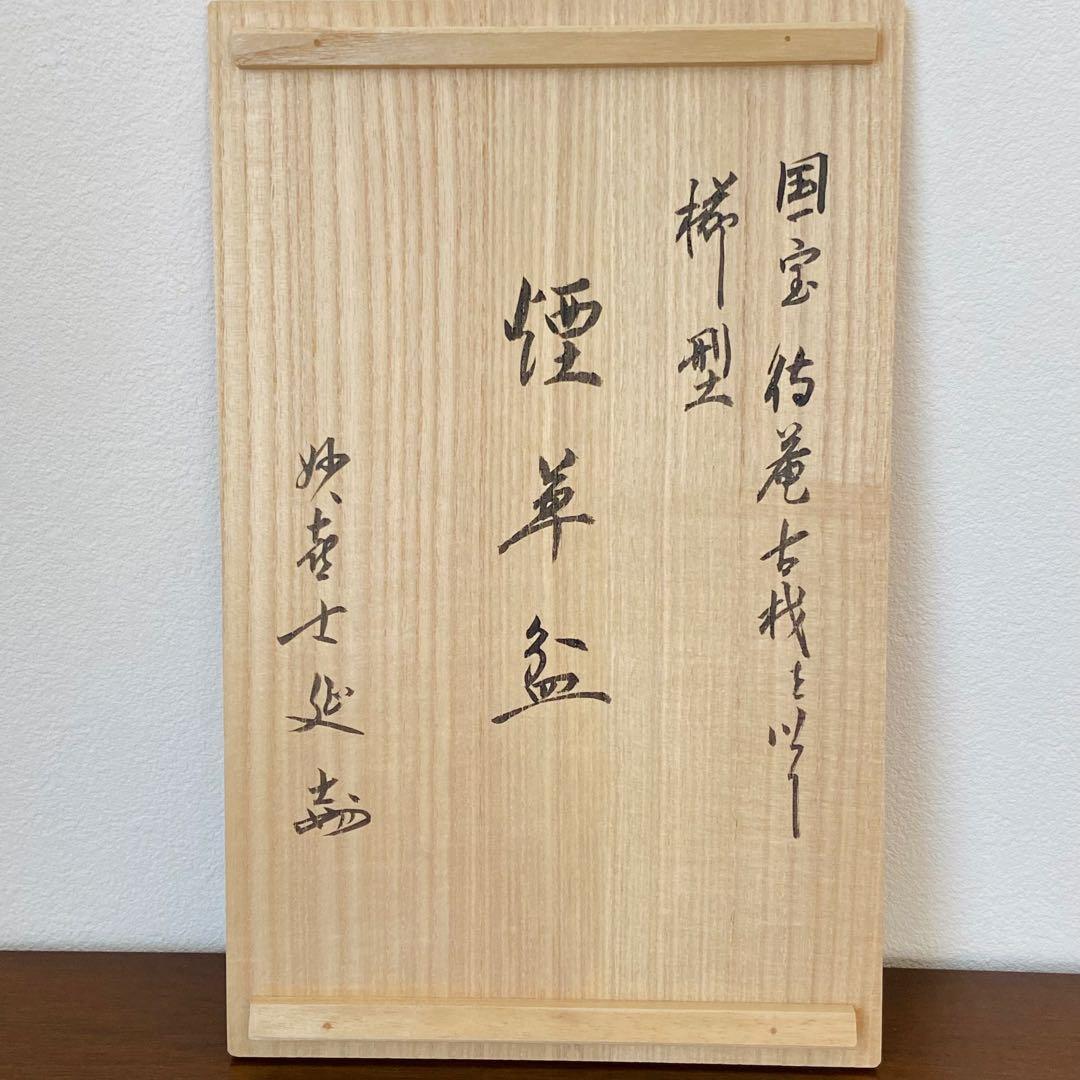 国宝待庵古材を以て
櫛型
煙草盆
妙喜士延